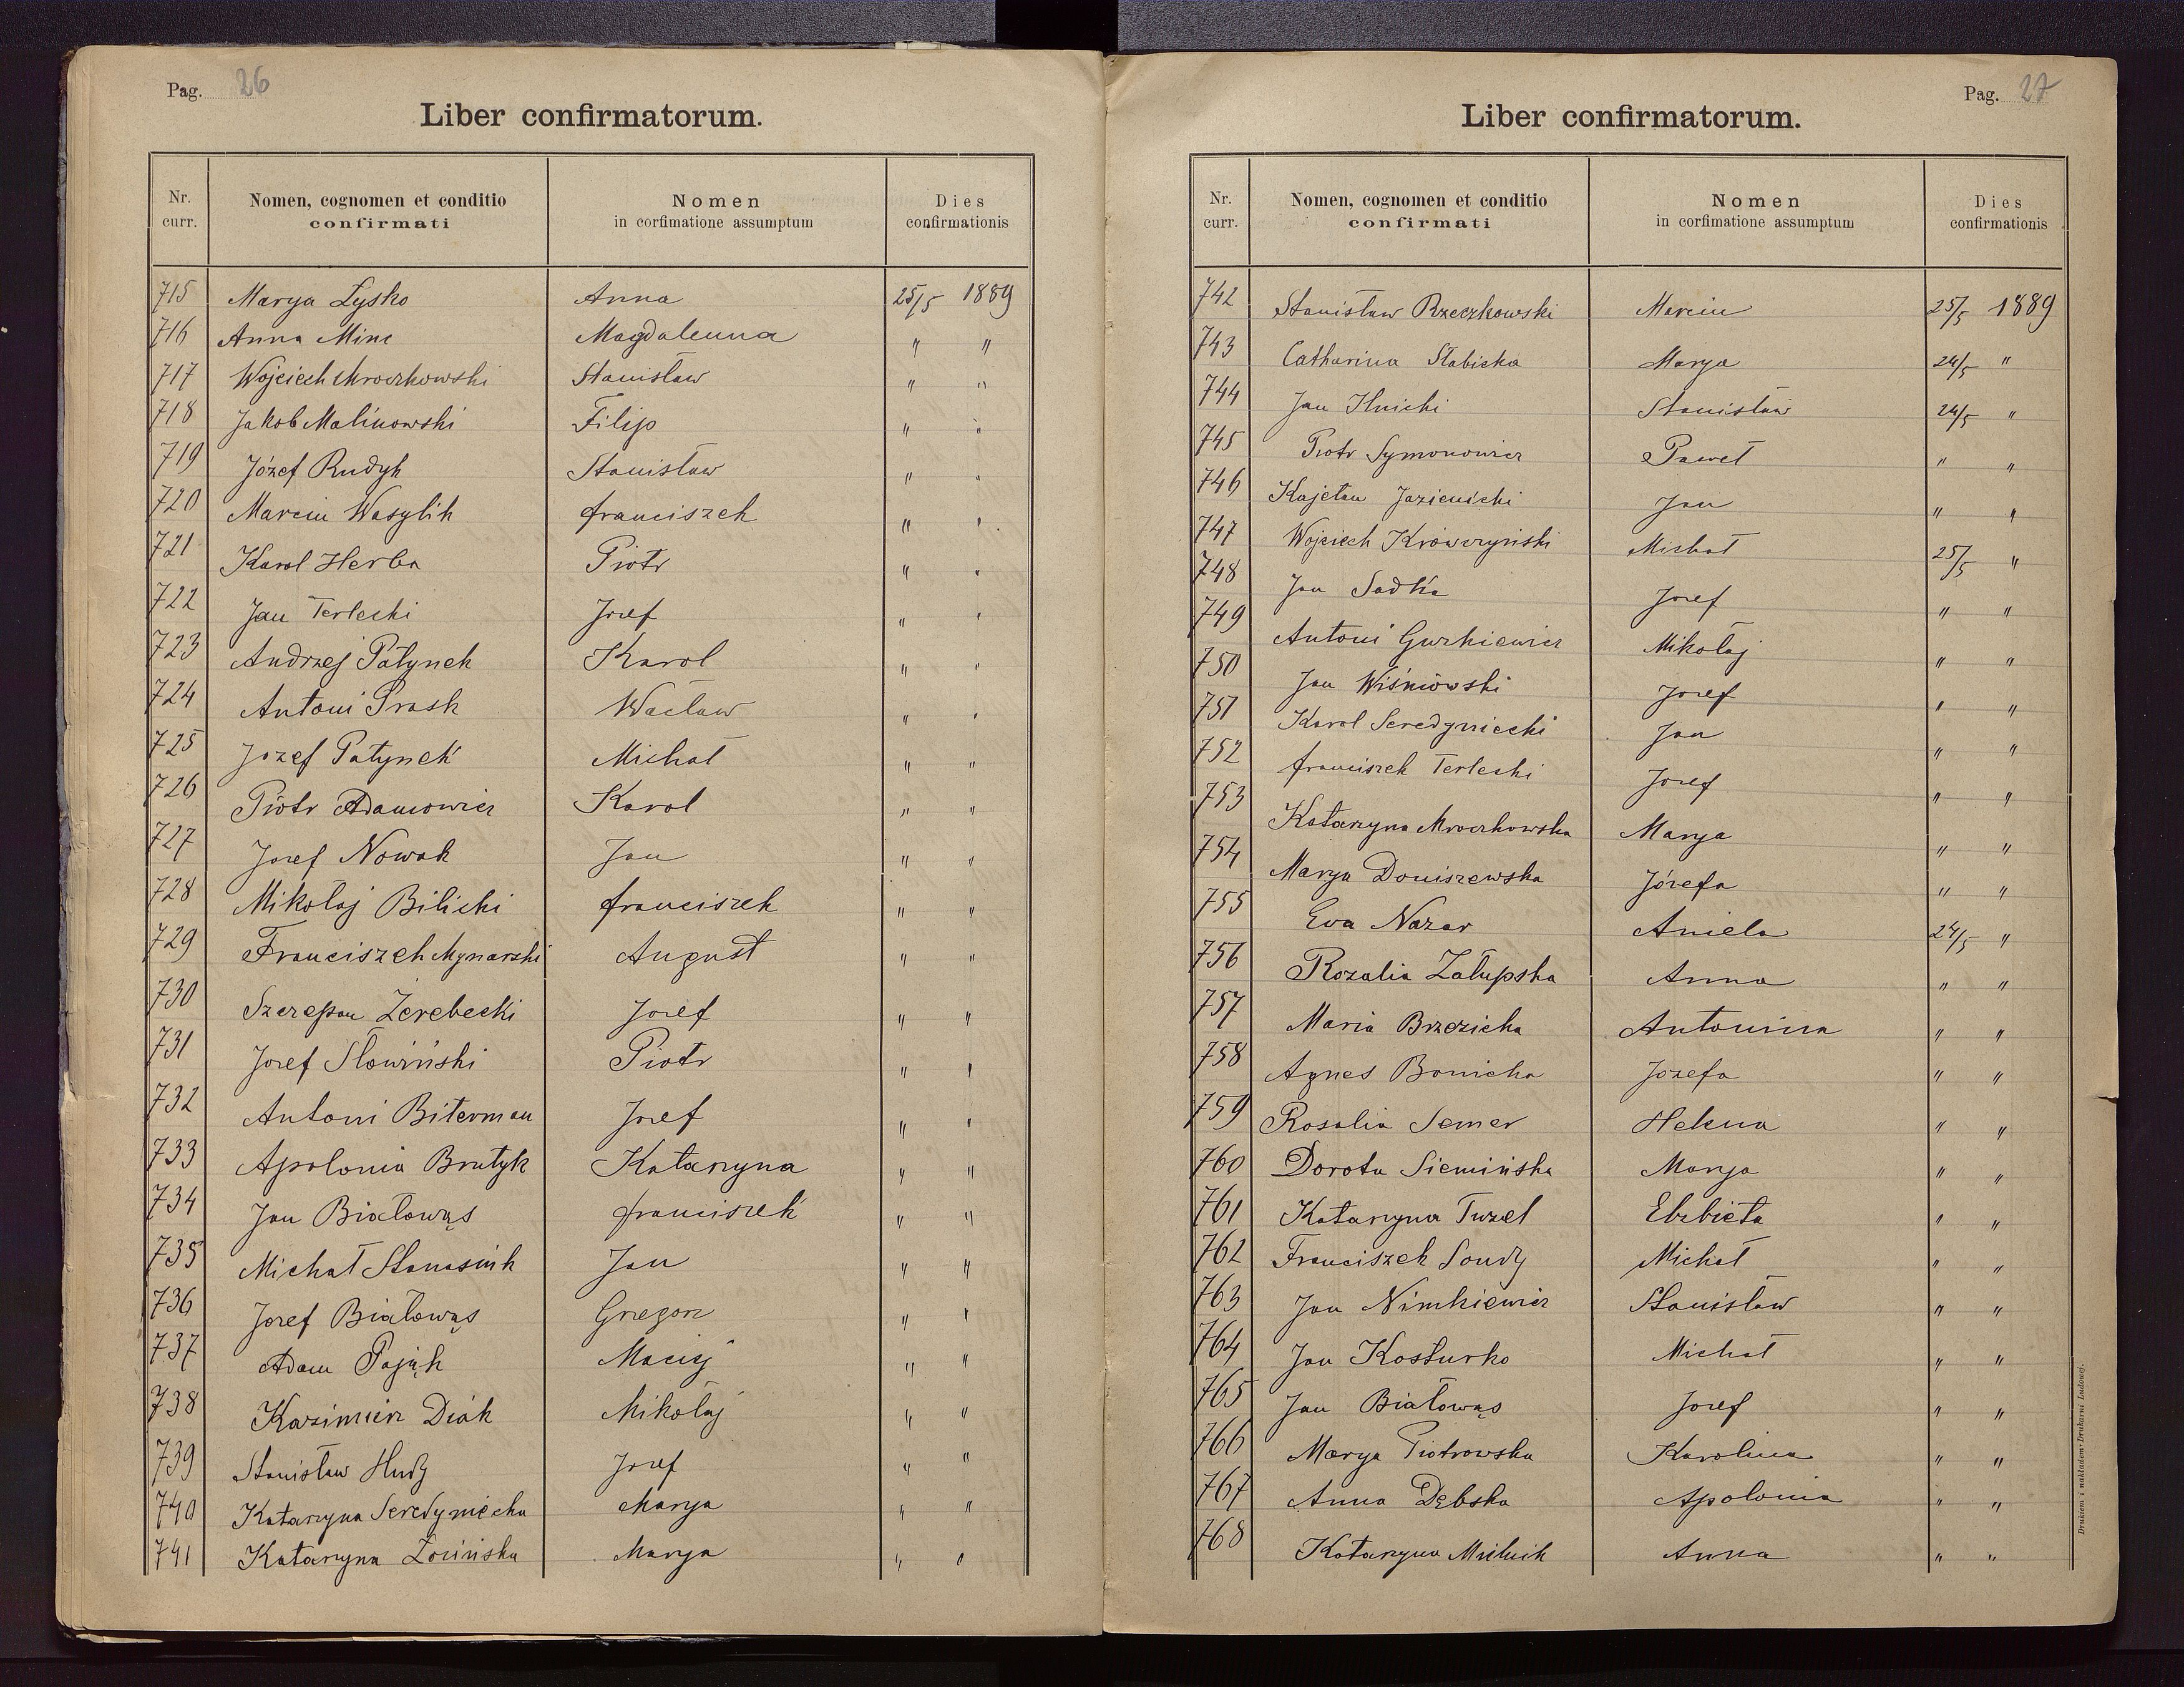 Pag. 26
Liber confirmatorum.
Nr. curr. Nomen, cognomen et conditio confirmati Nomen in corfimatione assumptum Dies confirmationis
715 Marya Łysko Anna 25/5 1889
716 Anna Minc Magdalenna " "
717 Wojciech Mroczkowski Stanisław " "
718 Jakob Malinowski Filip " "
719 Józef Rudyk Stanisław " "
720 Marcin Wasylik franciszek " "
721 Karol Herba Piotr " "
722 Jan Terlecki Josef " "
723 Andrzej Patynek Karol " "
724 Antoni Prask Wacław " "
725 Jozef Patynek Michał " "
726 Piotr Adamowicz Karol " "
727 Josef Nowak Jan " "
728 Mikołaj Bilicki franciszek " "
729 Franciszek Mynarski August " "
730 Szczepan Żerebecki Josef " "
731 Josef Słowiński Piotr " "
732 Antoni Biterman Josef " "
733 Apolonia Brutyk Katarzyna " "
734 Jan Białowąs franciszek " "
735 Michał Stanasiuk Jan " "
736 Josef Białowąs Grzegorz " "
737 Adam Pająk Maciej " "
738 Kazimierz Diak Mikołaj " "
739 Stanisław Hudz Josef " "
740 Katarzyna Seredyniecka Marya " "
741 Katarzyna Łosińska Marya " "
Pag. 27
Liber confirmatorum.
Nr. curr. Nomen, cognomen et conditio confirmati Nomen in corfimatione assumptum Dies confirmationis
742 Stanisław Rzeczkowski Marcin 25/5 1889
743 Catharina Słabicka Marya 24/5 "
744 Jan Ilnicki Stanisław 24/5 "
745 Piotr Symonowicz Paweł " "
746 Kajetan Jazienicki Jan " "
747 Wojciech Krówczyński Michał 25/5 "
748 Jan Sadka Josef " "
749 Antoni Gurkiewicz Mikołaj " "
750 Jan Wiśniowski Josef " "
751 Karol Seredyniecki Jan " "
752 franciszek Terlecki Josef " "
753 Katarzyna Mroczkowska Marya " "
754 Marya Doniszewska Józefa " "
755 Eva Nazar Aniela 24/5 "
756 Rozalia Załupska Anna " "
757 Maria Brzezicka Antonina " "
758 Agnes Bonicka Józefa " "
759 Rosalia Semer Helena " "
760 Dorota Siemińska Marya " "
761 Katarzyna Tuzel Elzbieta " "
762 Franciszek Soudz Michał " "
763 Jan Nimkiewicz Stanisław " "
764 Jan Kosturko Michał " "
765 Jan Białowąs Josef " "
766 Marya Piotrowska Karolina " "
767 Anna Dębska Apolonia " "
768 Katarzyna Mielnik Anna " "
Drukiem i nakładem Drukarni Ludowej.